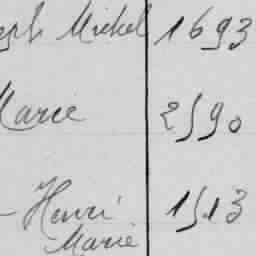 eph Michel 1693
Marie 2590
- Henri 1513
Marie